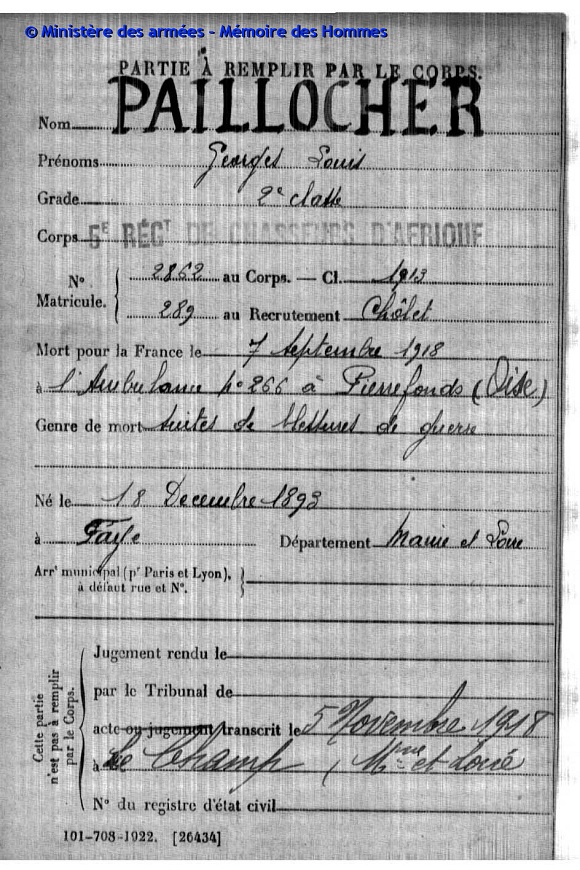 © Ministère des armées - Mémoire des Hommes
PARTIE À REMPLIR PAR LE CORPS.
Nom PAILLOCHER
Prénoms Georges Louis
Grade 2e classe
Corps 5E RÉGT DE CHASSEURS D'AFRIQUE
N° Matricule. { 2862 au Corps. — Cl. 1913
289 au Recrutement Chôlet
Mort pour la France le 7 septembre 1918
à l'Ambulance n° 266 à Pierrefonds (Oise)
Genre de mort suites de blessures de guerre
Né le 18 Decembre 1893
à Faye Département Maine et Loire
Arrt municipal (pr Paris et Lyon),
à défaut rue et N°.
Cette partie n'est pas à remplir par le Corps.
Jugement rendu le
par le Tribunal de
acte ou jugement transcrit le 5 Novembre 1918
à Le Champ (Mne et Loire
N° du registre d'état civil
101-708-1922. [26434]